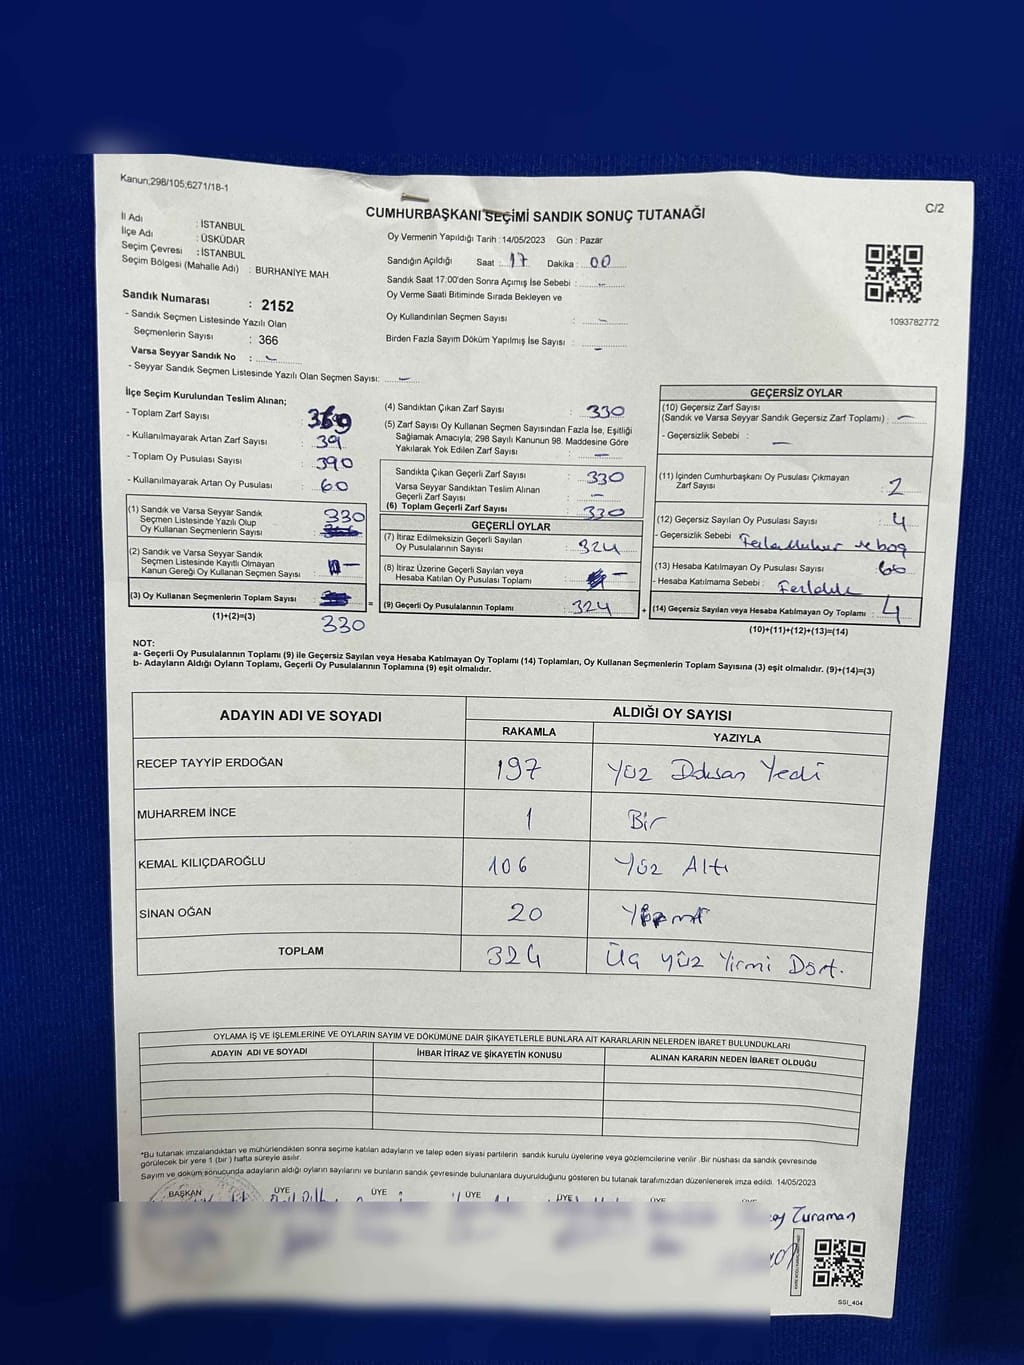 Kanun;298/105;6271/18-1
C/2
CUMHURBAŞKANI SEÇİMİ SANDIK SONUÇ TUTANAĞI
İl Adı : İSTANBUL
İlçe Adı : ÜSKÜDAR
Seçim Çevresi : İSTANBUL
Seçim Bölgesi (Mahalle Adı) : BURHANİYE MAH.
Sandık Numarası : 2152
- Sandık Seçmen Listesinde Yazılı Olan
Seçmenlerin Sayısı : 366
Varsa Seyyar Sandık No : -
- Seyyar Sandık Seçmen Listesinde Yazılı Olan Seçmen Sayısı: -
Oy Vermenin Yapıldığı Tarih : 14/05/2023 Gün : Pazar
Sandığın Açıldığı Saat : 17 Dakika : 00
Sandık Saat 17:00'den Sonra Açımış İse Sebebi : -
Oy Verme Saati Bitiminde Sırada Bekleyen ve
Oy Kullandırılan Seçmen Sayısı : -
Birden Fazla Sayım Döküm Yapılmış İse Sayısı : -
1093782772
İlçe Seçim Kurulundan Teslim Alınan;
- Toplam Zarf Sayısı : 369
- Kullanılmayarak Artan Zarf Sayısı : 39
- Toplam Oy Pusulası Sayısı : 390
- Kullanılmayarak Artan Oy Pusulası : 60
(1) Sandık ve Varsa Seyyar Sandık
Seçmen Listesinde Yazılı Olup
Oy Kullanan Seçmenlerin Sayısı : 330
(2) Sandık ve Varsa Seyyar Sandık
Seçmen Listesinde Kayıtlı Olmayan
Kanun Gereği Oy Kullanan Seçmen Sayısı : -
(3) Oy Kullanan Seçmenlerin Toplam Sayısı :
(1)+(2)=(3) 330
(4) Sandıktan Çıkan Zarf Sayısı : 330
(5) Zarf Sayısı Oy Kullanan Seçmen Sayısından Fazla İse, Eşitliği
Sağlamak Amacıyla; 298 Sayılı Kanunun 98. Maddesine Göre
Yakılarak Yok Edilen Zarf Sayısı : -
Sandıkta Çıkan Geçerli Zarf Sayısı : 330
Varsa Seyyar Sandıktan Teslim Alınan
Geçerli Zarf Sayısı : -
(6) Toplam Geçerli Zarf Sayısı : 330
GEÇERLİ OYLAR
(7) İtiraz Edilmeksizin Geçerli Sayılan
Oy Pusulalarının Sayısı : 324
(8) İtiraz Üzerine Geçerli Sayılan veya
Hesaba Katılan Oy Pusulası Toplamı : -
= (9) Geçerli Oy Pusulalarının Toplamı : 324
GEÇERSİZ OYLAR
(10) Geçersiz Zarf Sayısı
(Sandık ve Varsa Seyyar Sandık Geçersiz Zarf Toplamı) : -
- Geçersizlik Sebebi : -
(11) İçinden Cumhurbaşkanı Oy Pusulası Çıkmayan
Zarf Sayısı : 2
(12) Geçersiz Sayılan Oy Pusulası Sayısı : 4
- Geçersizlik Sebebi
(13) Hesaba Katılmayan Oy Pusulası Sayısı : 60
- Hesaba Katılmama Sebebi :
+ (14) Geçersiz Sayılan veya Hesaba Katılmayan Oy Toplamı : 4
(10)+(11)+(12)+(13)=(14)
NOT:
a- Geçerli Oy Pusulalarının Toplamı (9) ile Geçersiz Sayılan veya Hesaba Katılmayan Oy Toplamı (14) Toplamları, Oy Kullanan Seçmenlerin Toplam Sayısına (3) eşit olmalıdır. (9)+(14)=(3)
b- Adayların Aldığı Oyların Toplamı, Geçerli Oy Pusulalarının Toplamına (9) eşit olmalıdır.
ADAYIN ADI VE SOYADI ALDIĞI OY SAYISI
RAKAMLA YAZIYLA
RECEP TAYYİP ERDOĞAN 197 Yüz Doksan Yedi
MUHARREM İNCE 1 Bir
KEMAL KILIÇDAROĞLU 106 Yüz Altı
SİNAN OĞAN 20
TOPLAM 324 Üç yüz Yirmi Dört.
OYLAMA İŞ VE İŞLEMLERİNE VE OYLARIN SAYIM VE DÖKÜMÜNE DAİR ŞİKAYETLERLE BUNLARA AİT KARARLARIN NELERDEN İBARET BULUNDUKLARI
ADAYIN ADI VE SOYADI İHBAR İTİRAZ VE ŞİKAYETİN KONUSU ALINAN KARARIN NEDEN İBARET OLDUĞU
*Bu tutanak imzalandıktan ve mühürlendikten sonra seçime katılan adayların ve talep eden siyasi partilerin sandık kurulu üyelerine veya gözlemcilerine verilir .Bir nüshası da sandık çevresinde
görülecek bir yere 1 (bir ) hafta süreyle asılır.
Sayım ve döküm sonucunda adayların aldığı oyların sayılarını ve bunların sandık çevresinde bulunanlara duyurulduğunu gösteren bu tutanak tarafımızdan düzenlenerek imza edildi. 14/05/2023
BAŞKAN ÜYE ÜYE ÜYE ÜYE ÜYE
Turaman
SSI_404